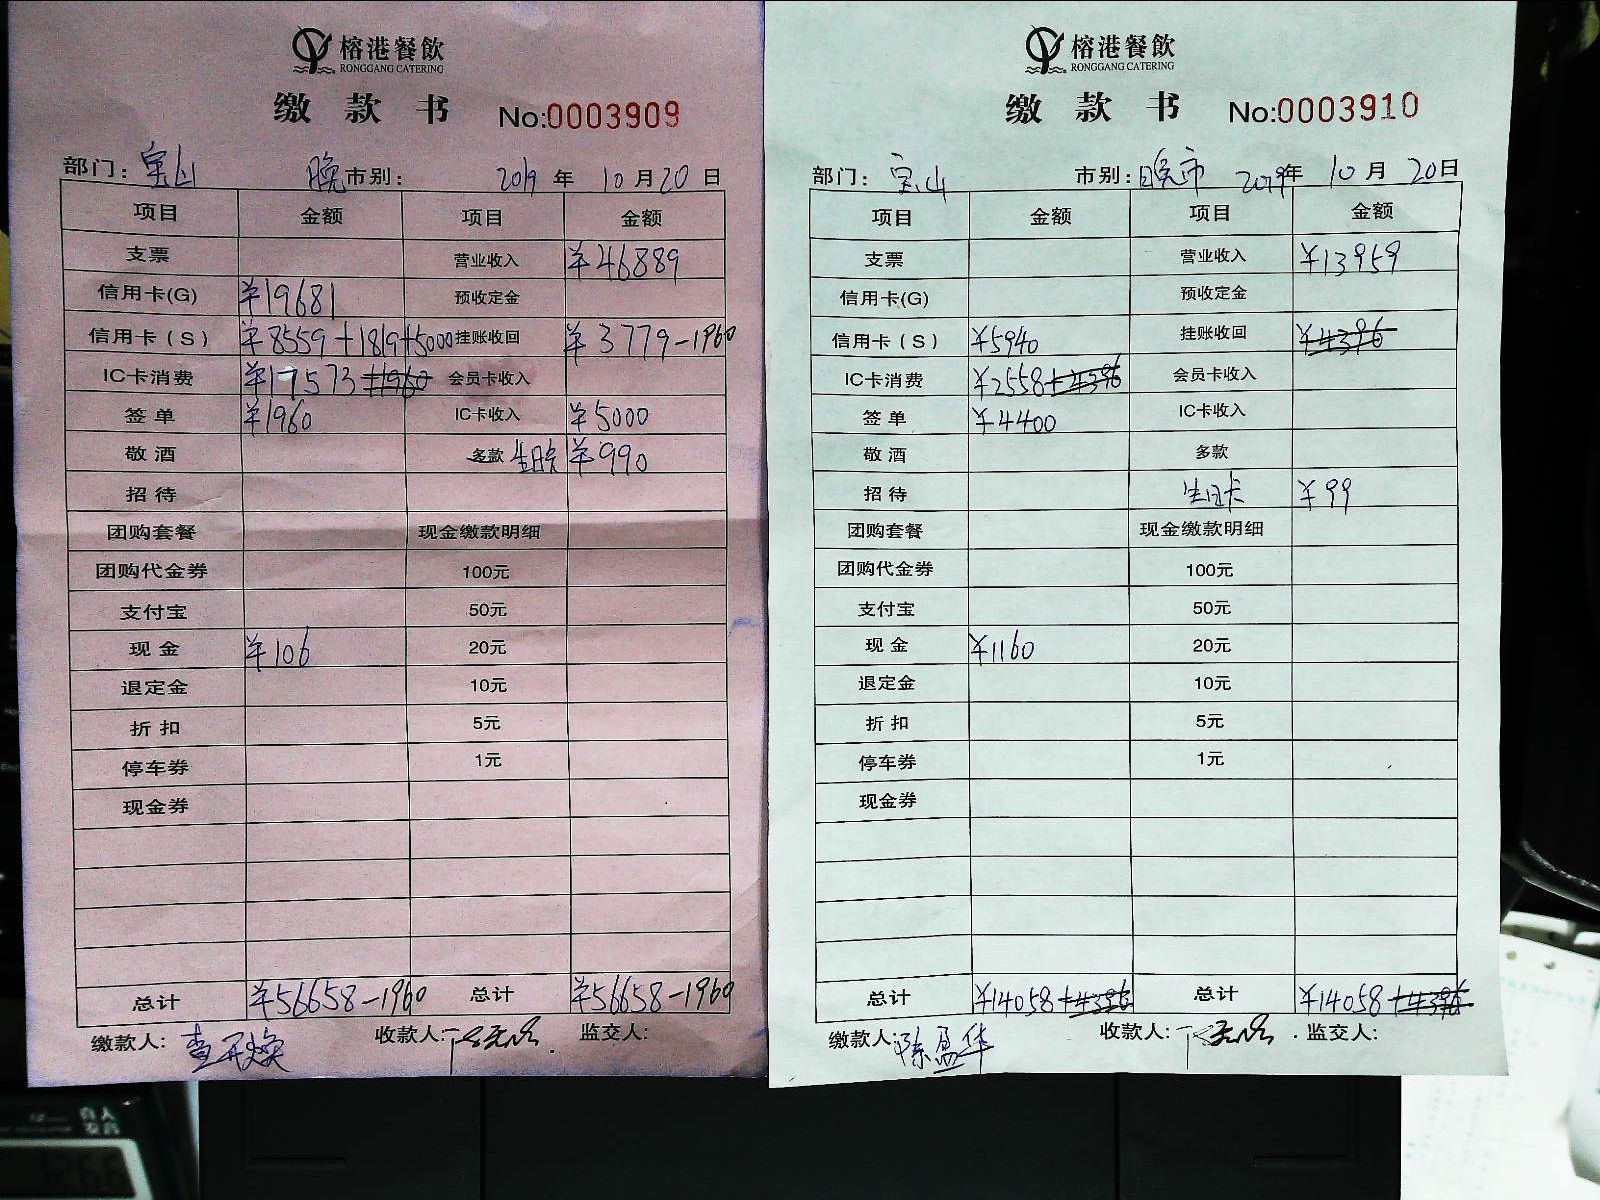 榕港餐飲
RONGGANG CATERING
缴款书 No:0003909
部门: 宝山 晚市别: 2019年10月20日
项目 金额 项目 金额
支票 营业收入 ¥46889
信用卡(G) ¥19681 预收定金
信用卡(S) ¥8559+1819+5000 挂账收回 ¥3779-1960
IC卡消费 ¥17573+1960 会员卡收入
签单 ¥1960 IC卡收入 ¥5000
敬酒 多款 生日卡 ¥990
招待
团购套餐 现金缴款明细
团购代金券 100元
支付宝 50元
现金 ¥106 20元
退定金 10元
折扣 5元
停车券 1元
现金券
总计 ¥56658-1960 总计 ¥56658-1960
缴款人: 收款人: 监交人:
榕港餐飲
RONGGANG CATERING
缴款书 No:0003910
部门: 宝山 市别: 晚市 2019年10月20日
项目 金额 项目 金额
支票 营业收入 ¥13959
信用卡(G) 预收定金
信用卡(S) ¥5940 挂账收回 ¥4396
IC卡消费 ¥2558+4396 会员卡收入
签单 ¥4400 IC卡收入
敬酒 多款
招待 生日卡 ¥99
团购套餐 现金缴款明细
团购代金券 100元
支付宝 50元
现金 ¥1160 20元
退定金 10元
折扣 5元
停车券 1元
现金券
总计 ¥14058+4396 总计 ¥14058+4396
缴款人: 陈盈华 收款人: 监交人: